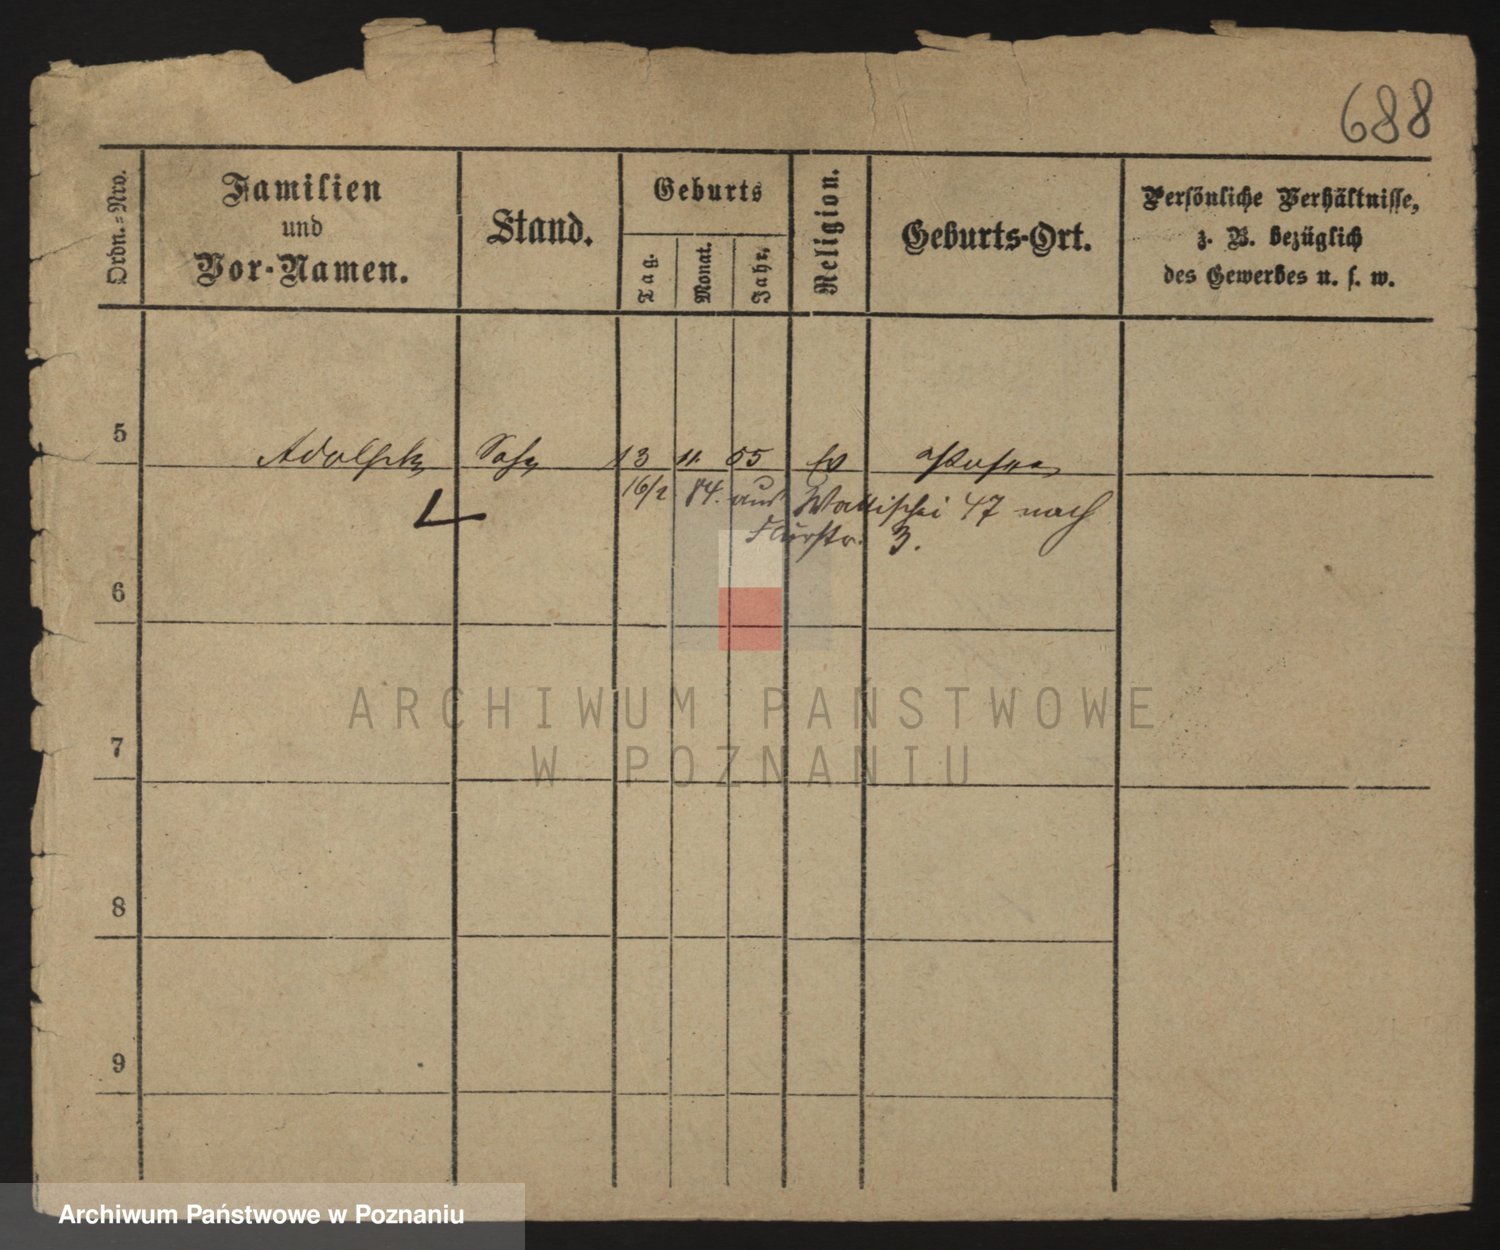 688
Ordn.=Nro.
Familien
und
Vor-Namen.
Stand.
Geburts
Tag.
Monat.
Jahr.
Religion.
Geburts-Ort.
Persönliche Verhältnisse,
z. B. bezüglich
des Gewerbes u. s. w.
5 Adolph Sohn 13 11. 55 ev Posen
16/2 84. aus Wallischei 47 nach
Flurstr. 3.
6
ARCHIWUM PAŃSTWOWE
7
W POZNANIU
8
9
Archiwum Państwowe w Poznaniu